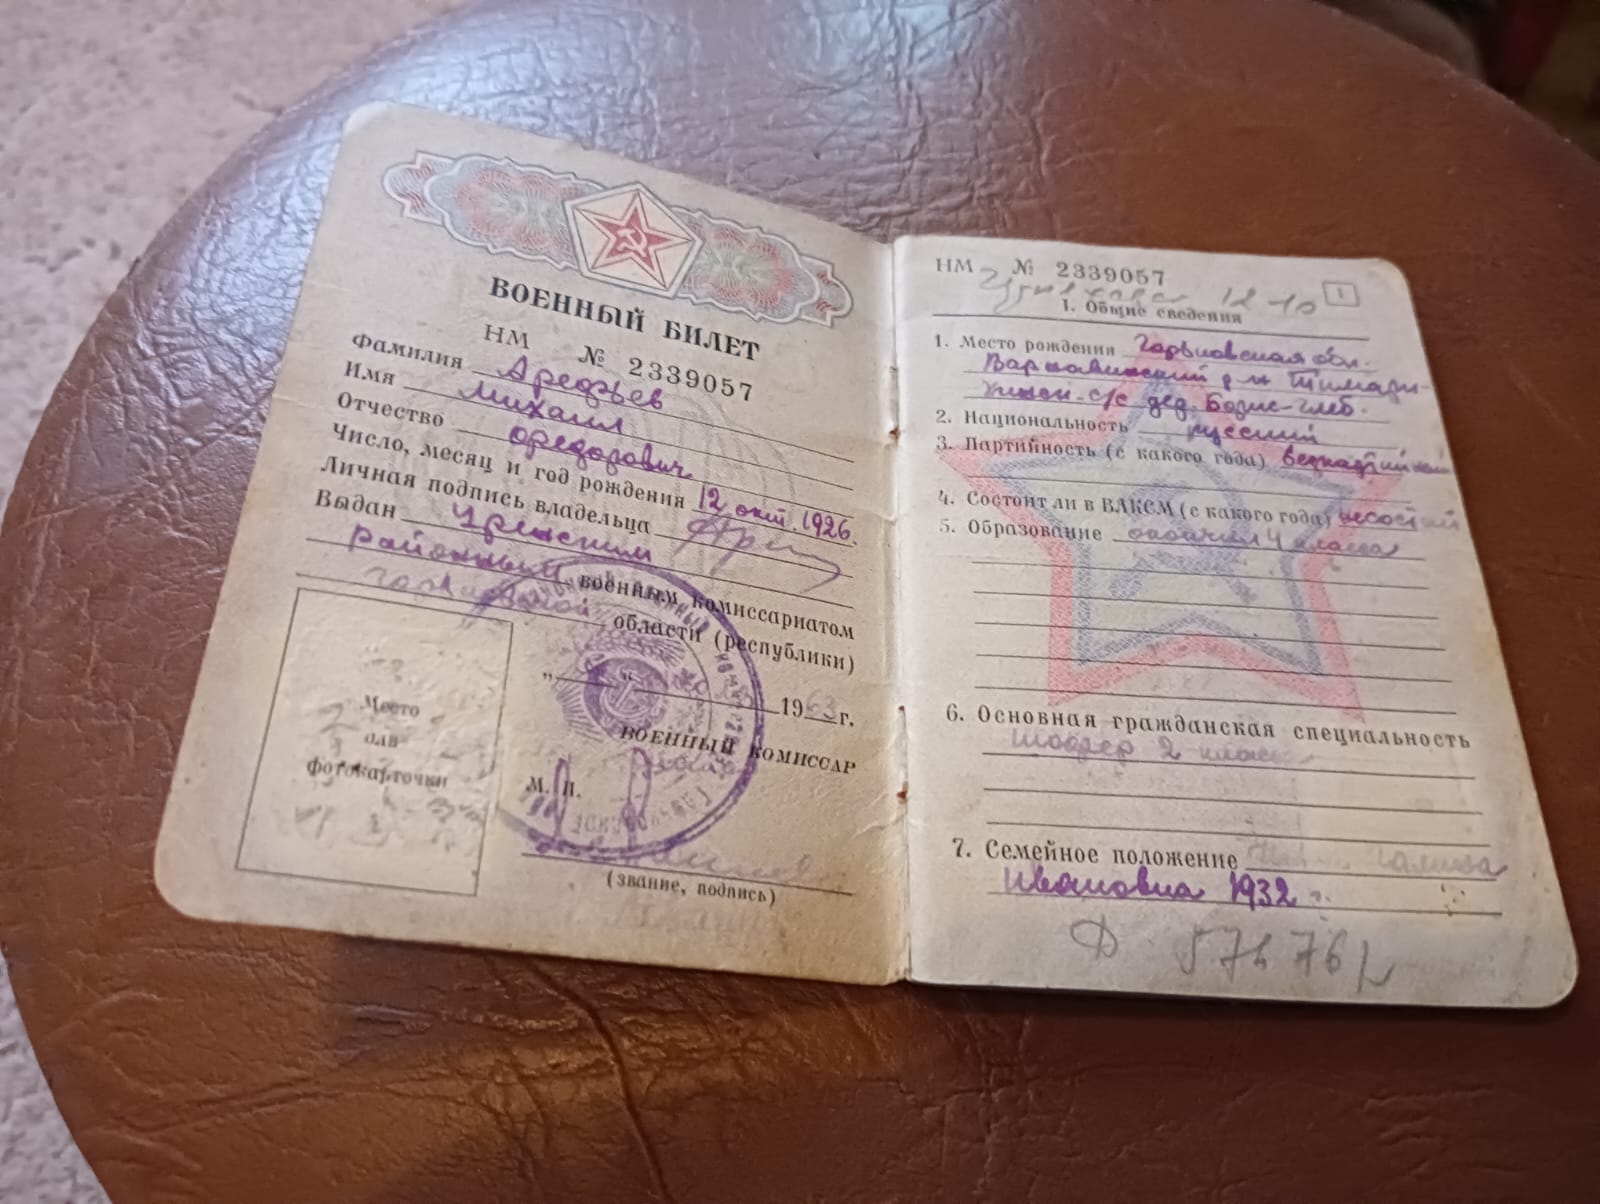 ВОЕННЫЙ БИЛЕТ
НМ № 2339057
Фамилия Аредзьев
Имя Михаил
Отчество Федорович
Число, месяц и год рождения 12 окт. 1926.
Личная подпись владельца
Выдан Уренским
районным военным комиссариатом
горьковской области (республики)
" " 1963 г.
ВОЕННЫЙ КОМИССАР
М. П.
(звание, подпись)
Место
для
фотокарточки
НМ № 2339057
12-10
1
1. Общие сведения
1. Место рождения Горьковская обл.
Варнавинский р-н
с/с дер. Борис-Глеб.
2. Национальность русский
3. Партийность (с какого года) беспартийный
4. Состоит ли в ВЛКСМ (с какого года)
5. Образование окончил 4 класса
6. Основная гражданская специальность
шофер 2 класс
7. Семейное положение Галина
Ивановна 1932 г.